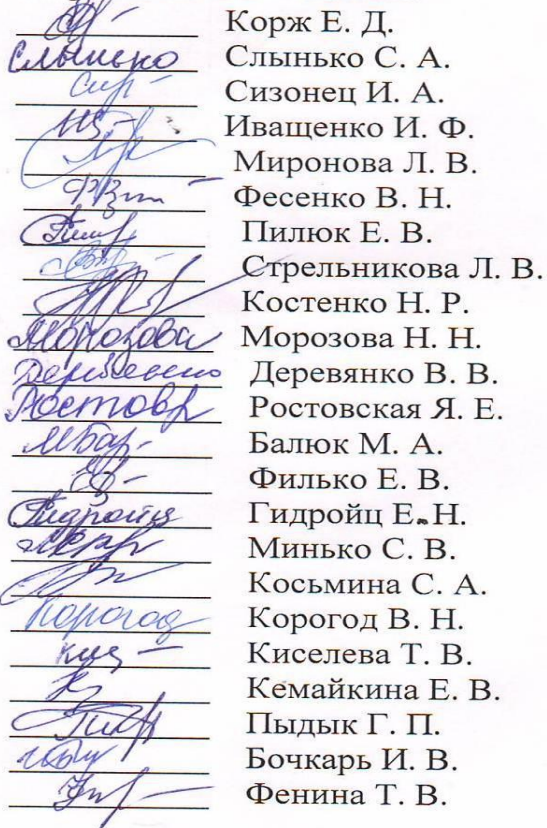 Корж Е. Д.
Слынько Слынько С. А.
Сизонец И. А.
Иващенко И. Ф.
Миронова Л. В.
Фесенко В. Н.
Пилюк Е. В.
Стрельникова Л. В.
Костенко Н. Р.
Морозова Морозова Н. Н.
Деревянко В. В.
Ростовская Я. Е.
Балюк М. А.
Филько Е. В.
Гидройц Гидройц Е. Н.
Минько С. В.
Косьмина С. А.
Корогод Корогод В. Н.
Киселева Т. В.
Кемайкина Е. В.
Пыдык Г. П.
Бочкарь И. В.
Фенина Т. В.